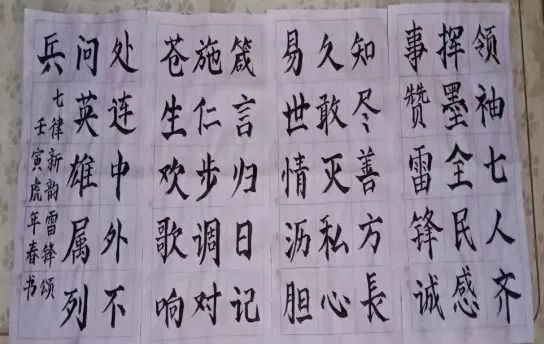 领袖七人齐
挥墨全民感
事赞雷锋诚
知尽善方長
久敢灭私心
易世情沥胆
箴言归日记
施仁步调对
苍生欢歌响
处连中外不
问英雄属列
兵
七律新韵雷锋颂
壬寅虎年春书